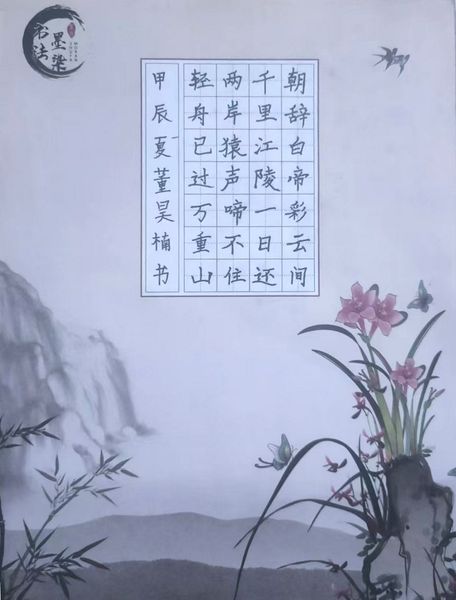 朝辞白帝彩云间
千里江陵一日还
两岸猿声啼不住
轻舟已过万重山
甲辰夏董昊楠书
书法